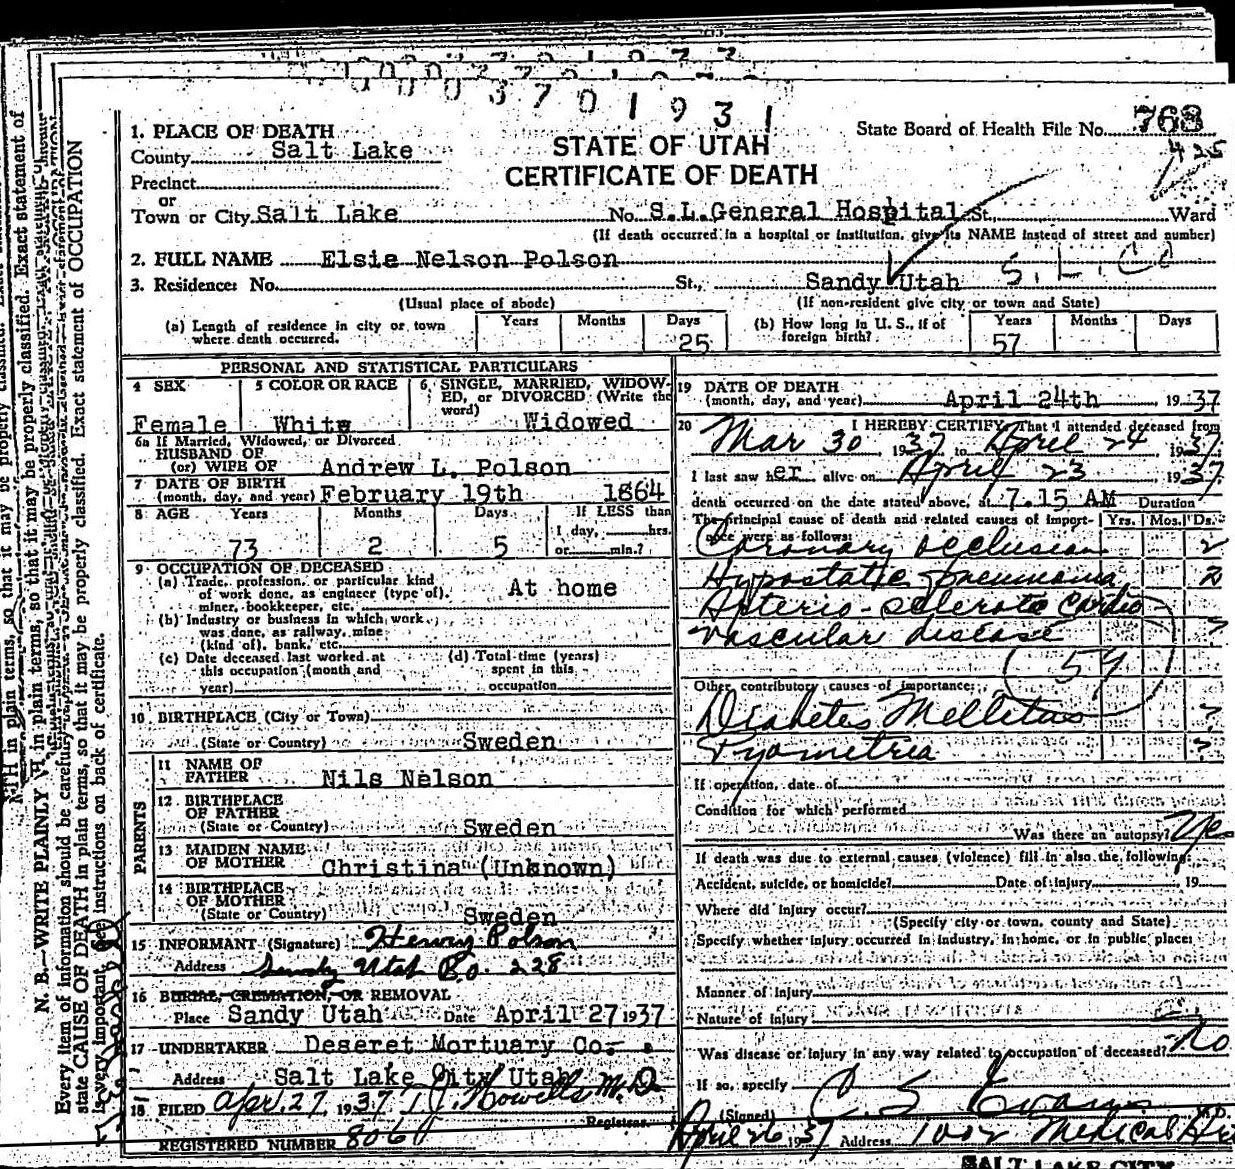 0003701931
State Board of Health File No. 768
425
1. PLACE OF DEATH
STATE OF UTAH
CERTIFICATE OF DEATH
County Salt Lake
Precinct
or
Town or City Salt Lake No. S.L.General Hospital St., Ward
(If death occurred in a hospital or institution, give its NAME instead of street and number)
2. FULL NAME Elsie Nelson Polson
3. Residence: No. St., Sandy Utah S. L. Co
(Usual place of abode) (If non-resident give city or town and State)
(a) Length of residence in city or town where death occurred. Years Months Days 25
(b) How long in U. S., if of foreign birth? Years 57 Months Days
PERSONAL AND STATISTICAL PARTICULARS
4 SEX Female
5 COLOR OR RACE White
6. SINGLE, MARRIED, WIDOWED, or DIVORCED (Write the word) Widowed
6a If Married, Widowed, or Divorced
HUSBAND OF
(or) WIFE OF Andrew L. Polson
7 DATE OF BIRTH
(month, day, and year) February 19th 1864
8 AGE Years 73 Months 2 Days 5 If LESS than 1 day, hrs. or min.?
9 OCCUPATION OF DECEASED
(a) Trade, profession, or particular kind of work done, as engineer (type of), miner, bookkeeper, etc. At home
(b) Industry or business in which work was done, as railway, mine (kind of), bank, etc.
(c) Date deceased last worked at this occupation (month and year)
(d) Total time (years) spent in this occupation
10 BIRTHPLACE (City or Town)
(State or Country) Sweden
PARENTS
11 NAME OF FATHER Nils Nelson
12 BIRTHPLACE OF FATHER
(State or Country) Sweden
13 MAIDEN NAME OF MOTHER Christina (Unknown)
14 BIRTHPLACE OF MOTHER
(State or Country) Sweden
15 INFORMANT (Signature) Henry Polson
Address Sandy Utah Bo. 228
16 BURIAL, CREMATION, OR REMOVAL
Place Sandy Utah Date April 27 1937
17 UNDERTAKER Deseret Mortuary Co.
Address Salt Lake City Utah
18 FILED Apr. 27, 1937 T.J. Howells M.D.
Registrar.
REGISTERED NUMBER 806
19 DATE OF DEATH
(month, day, and year) April 24th , 1937
20 I HEREBY CERTIFY, That I attended deceased from
Mar 30 1937 to April 24 1937
I last saw her alive on April 23 1937
death occurred on the date stated above, at 7.15 AM Duration
The principal cause of death and related causes of importance were as follows: Yrs. Mos. Ds.
Coronary occlusion 2
Hypostatic pneumonia 2
Arterio-sclerotic Cardio
Vascular disease ?
Other contributory causes of importance:
Diabetes Mellitus ?
Pyometria ?
If operation, date of
Condition for which performed
Was there an autopsy?
If death was due to external causes (violence) fill in also the following:
Accident, suicide, or homicide? Date of injury 19
Where did injury occur?
(Specify city or town, county and State)
Specify whether injury occurred in industry, in home, or in public place:
Manner of injury
Nature of injury
Was disease or injury in any way related to occupation of deceased? No
If so, specify
(Signed) C. S. Evans M.D.
April 26 1937 Address 1002 Medical
SALT LAKE CITY
N. B.—WRITE PLAINLY
Every item of information should be carefully
state CAUSE OF DEATH in plain terms, so that it may be properly classified. Exact statement of OCCUPATION
is very important. See instructions on back of certificate.